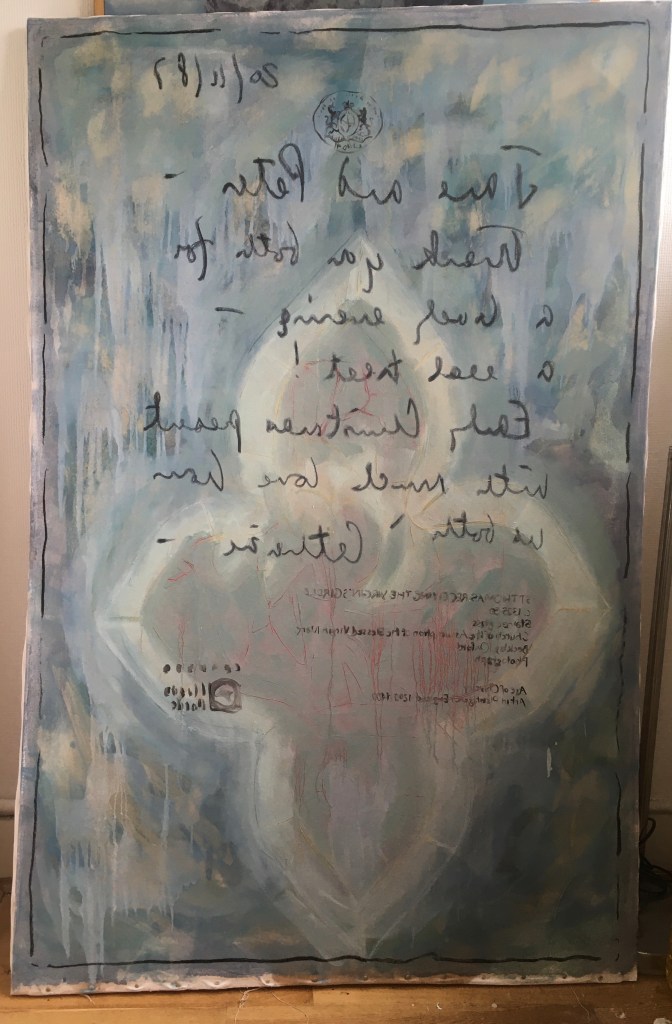 20/11/87
Jane and Peter –
Thank you both for
a lovely evening –
a real treat!
Early Christmas present
with much love from
us both Catherine –
ST THOMAS RECEIVING THE VIRGIN'S GIRDLE
c 1325-30
Stained glass
Church of the Assumption of the Blessed Virgin Mary
Beckley, Oxford
Photograph
Age of Chivalry
Art in Plantagenet England 1200-1400